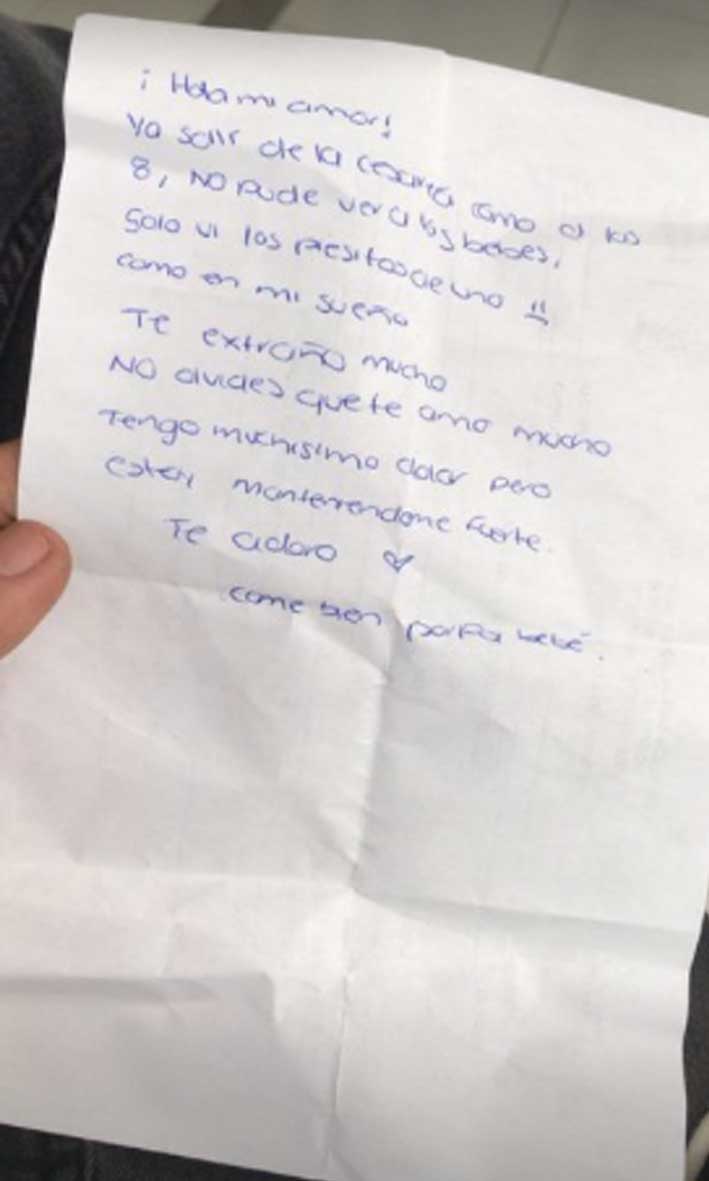 ¡ Hola mi amor!
Ya salir de la cesarea como a las
8, NO pude ver a los bebes,
Solo vi los piesitos de uno !!
como en mi sueño
Te extraño mucho
NO olvides que te amo mucho
Tengo muchisimo dolor pero
estoy manteniendome fuerte.
Te adoro
come bien porfa bebé.